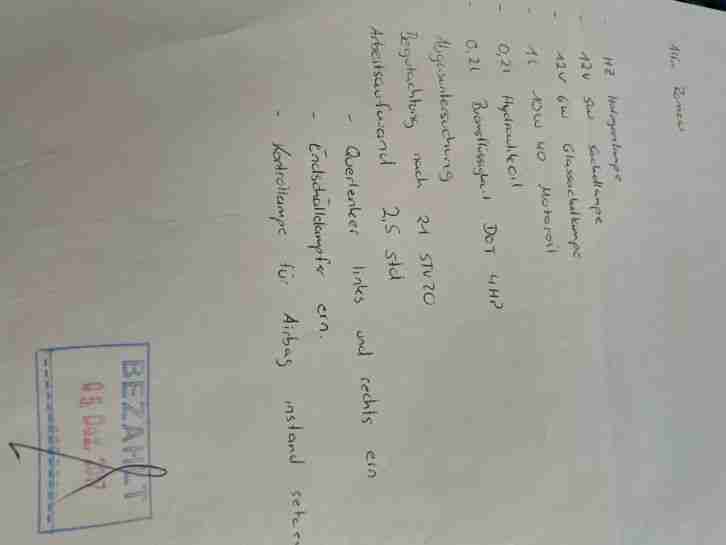 - H7 Halogenlampe
- 12V 5W Sockellampe
- 12V 6W Glassockellampe
- 1L 10W 40 Motoroil
- 0,2l Hydrauliköl
- 0,2l Bremsflüssigkeit DOT 4HP
Abgasuntersuchung
Begutachtung nach 21 STVZO
Arbeitsaufwand 2,5 std
- Querlenker links und rechts ern
- Endschalldämpfer ern.
- Kontrollampe für Airbag instand setzen
BEZAHLT
05. Dez.